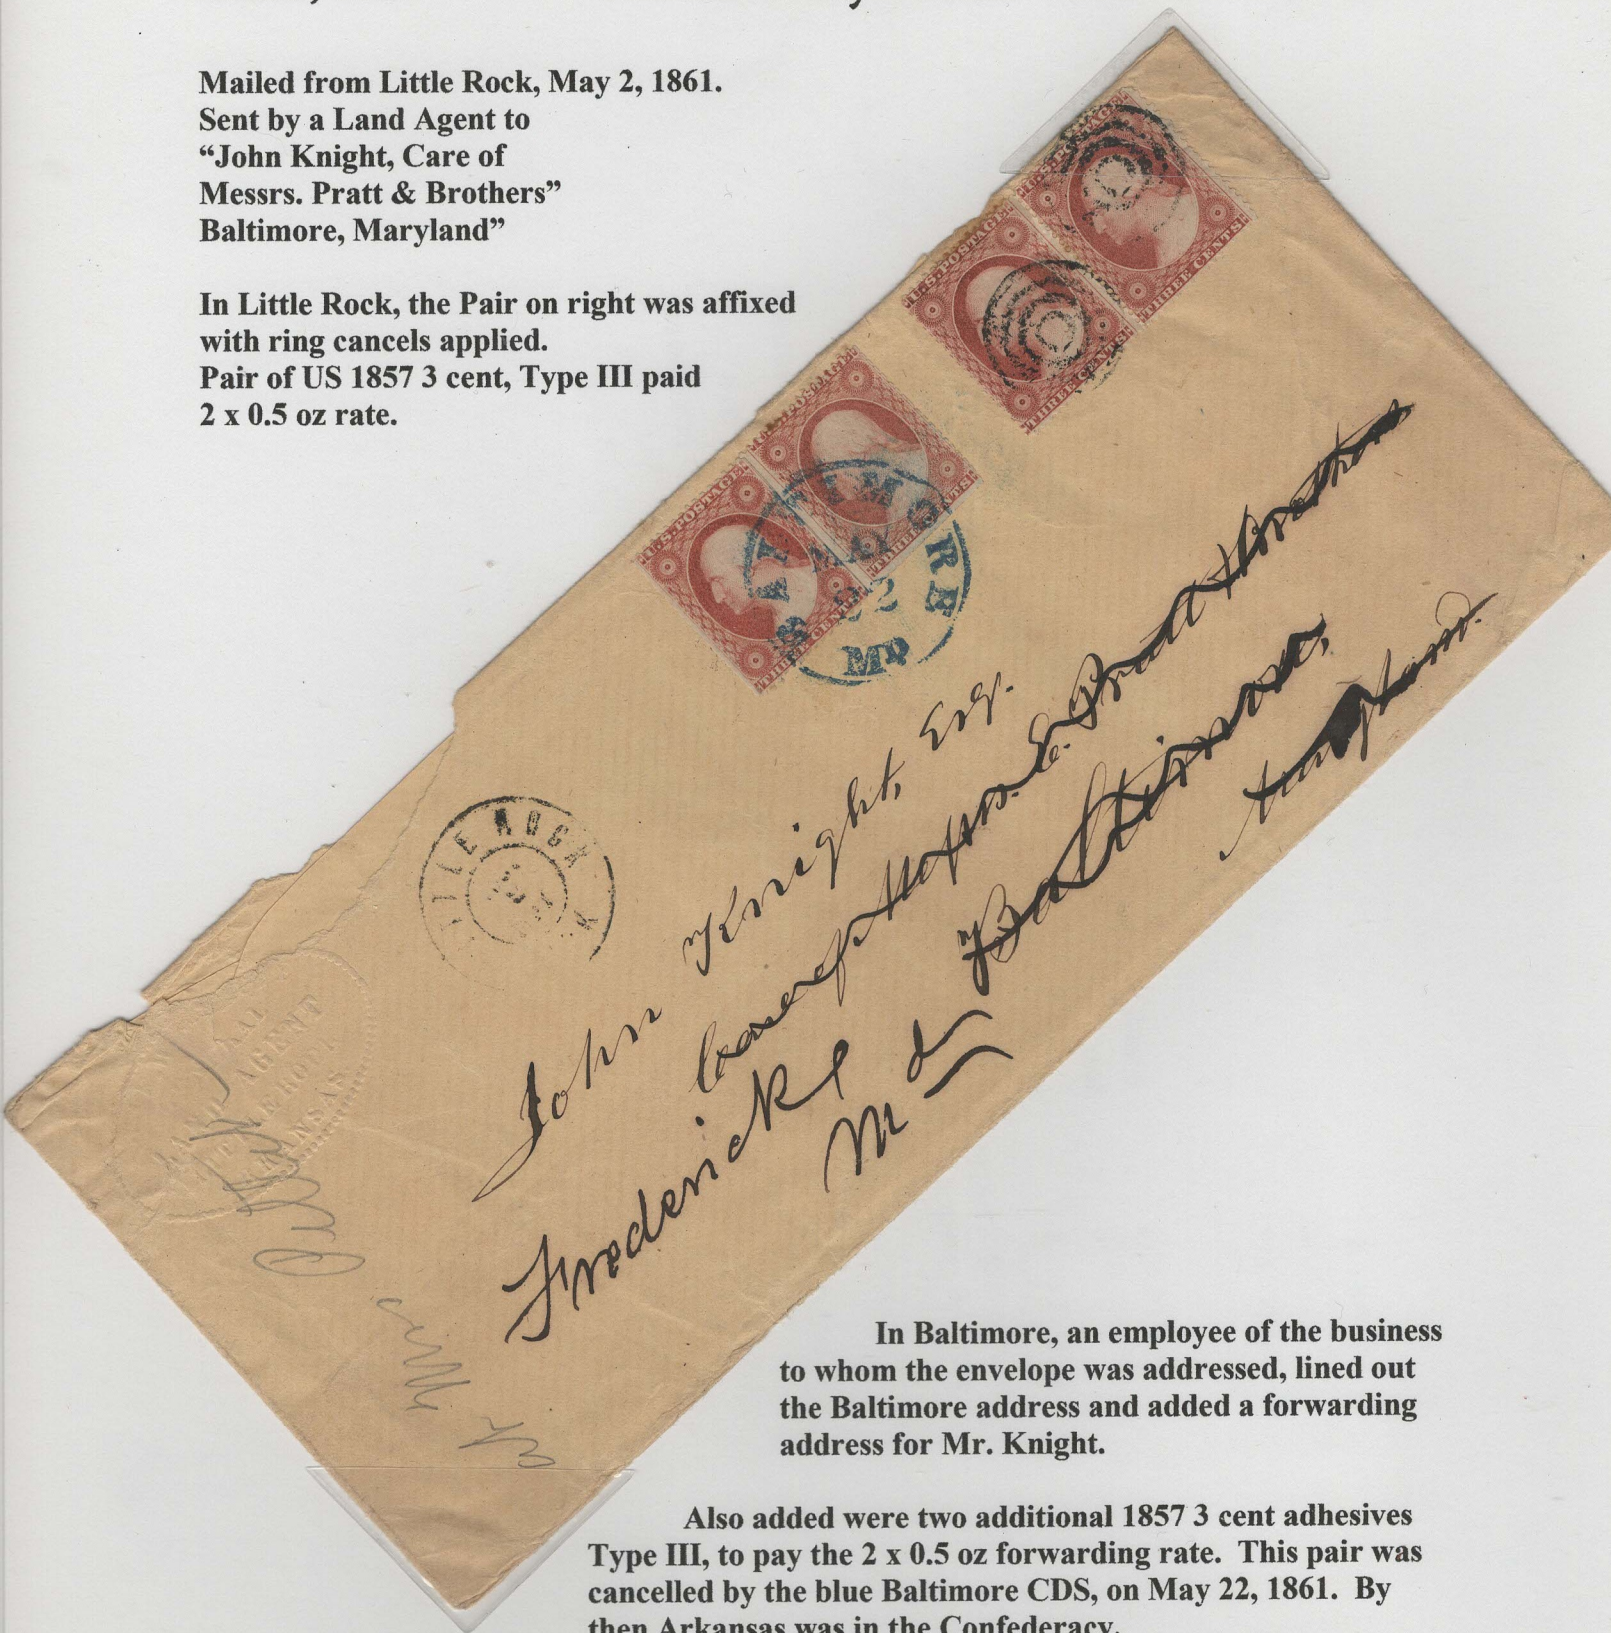 Mailed from Little Rock, May 2, 1861.
Sent by a Land Agent to
“John Knight, Care of
Messrs. Pratt & Brothers”
Baltimore, Maryland”
In Little Rock, the Pair on right was affixed
with ring cancels applied.
Pair of US 1857 3 cent, Type III paid
2 x 0.5 oz rate.
U.S. POSTAGE
THREE CENTS
U.S. POSTAGE
THREE CENTS
U.S. POSTAGE
THREE CENTS
U.S. POSTAGE
THREE CENTS
BALTIMORE
MAY
22
MD
ROCK
AGENT
John Knight, Esq.
Care of Messrs. E. Pratt & Brothers
Baltimore,
Maryland.
Frederick
Md
In Baltimore, an employee of the business
to whom the envelope was addressed, lined out
the Baltimore address and added a forwarding
address for Mr. Knight.
Also added were two additional 1857 3 cent adhesives
Type III, to pay the 2 x 0.5 oz forwarding rate. This pair was
cancelled by the blue Baltimore CDS, on May 22, 1861. By
then Arkansas was in the Confederacy.